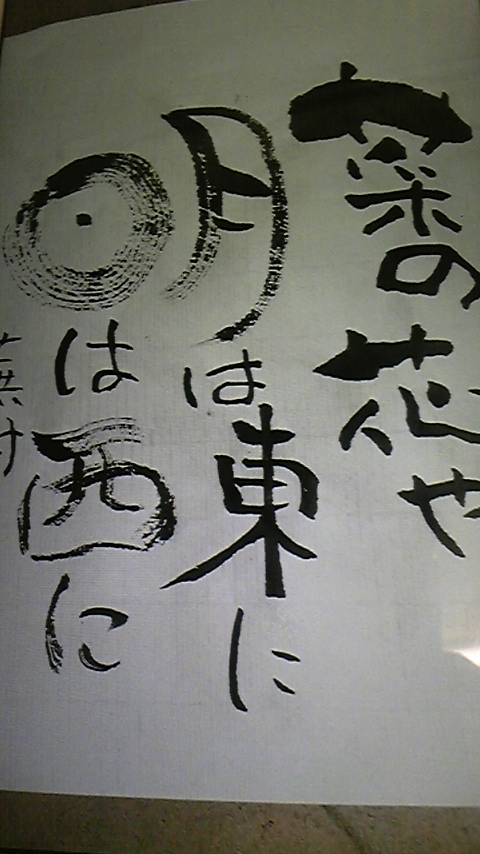 菜の花や
月は東に
日は西に
蕪村